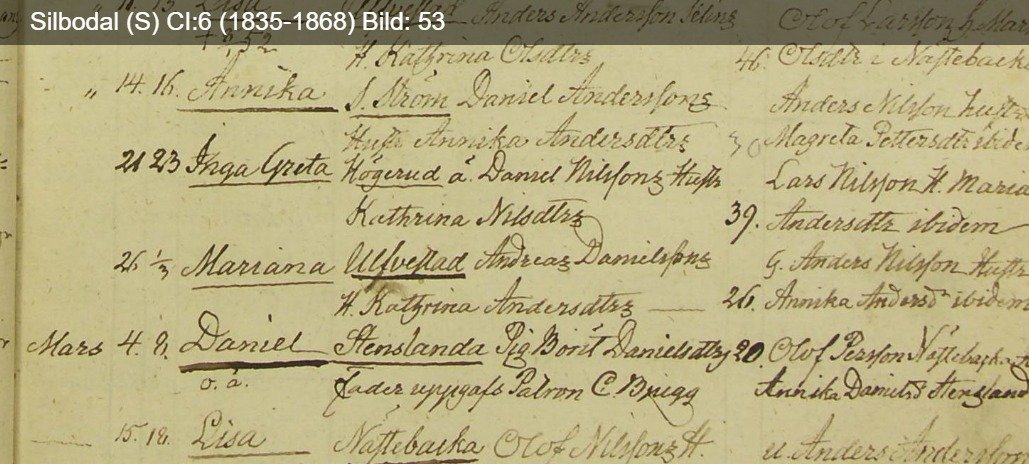 Silbodal (S) CI:6 (1835-1868) Bild: 53
Anders Andersson
H. Kathrina Olsdtrz 46. Olsdtr i Näftebacka
" 14. 16. Annika S. Ström Daniel Anderssonz Anders Nilsson hustr
Hustr Annika Andersdtrz 30 Magreta Pettersdtr ibidem
21 23 Inga Greta Högerud å. Daniel Nilssonz Hustr Lars Nilsson H. Maria
Kathrina Nilsdtrz 39. Andersdtr ibidem
26 1/3 Mariana Ulfvestad Andreaz Danielssonz G. Anders Nilsson Hustr
H. Kathrina Andersdtrz 26. Annika Andersd ibidem
Mars 4. 8. Daniel Stenslanda Pig Borit Danielsdtrz 20. Olof Persson Näftebacka
o. ä. fader uppgafs Patron C Brigg Annika Danielsd Stensland
15. 18. Lisa Näftebacka Olof Nilssonz H. u. Anders Andersson